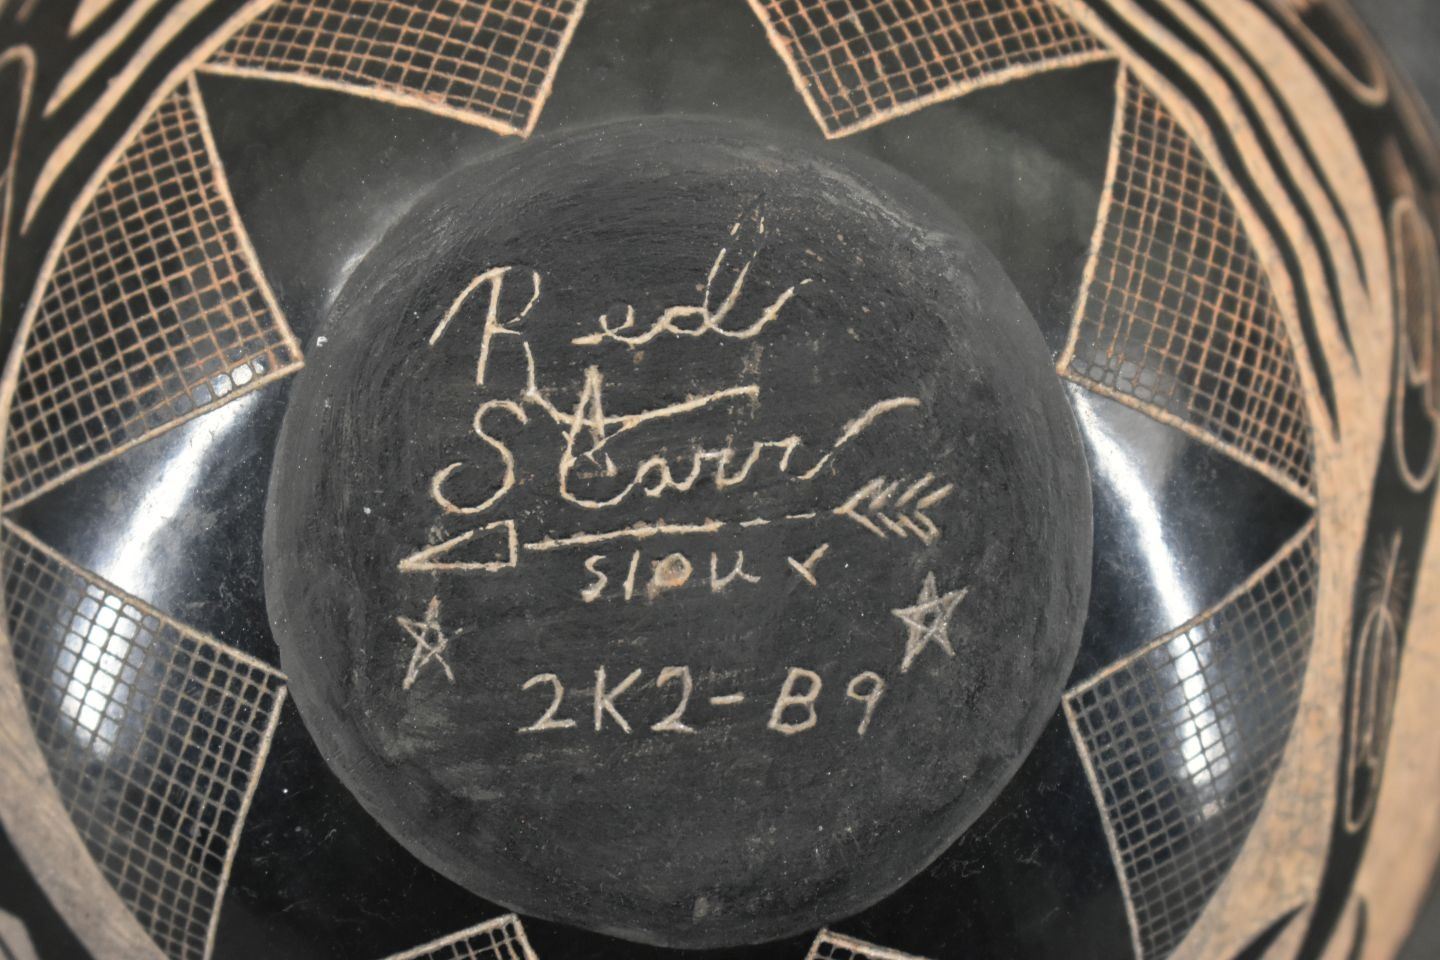 Red
Starr
SIOUX
2K2-B9